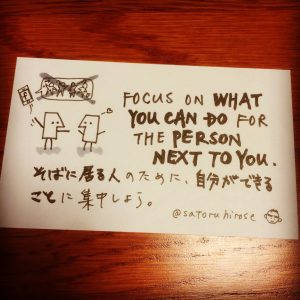 FOCUS ON WHAT
YOU CAN DO FOR
THE PERSON
NEXT TO YOU.
そばに居る人のために、自分ができる
ことに集中しよう。
@satoruhirose